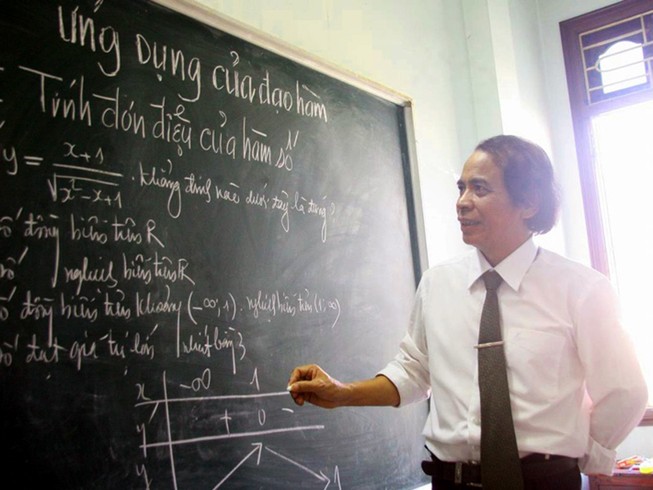 Ứng dụng của đạo hàm
Tính đơn điệu của hàm số
y = x+1 / √x²-x+1 . Khẳng định nào dưới đây là đúng?
số đồng biến trên R
số nghịch biến trên R
số đồng biến trên khoảng (-∞, 1) . nghịch biến trên (1, ∞)
số đạt giá trị lớn nhất bằng 3
x -∞ 1
y' + 0 -
y 1